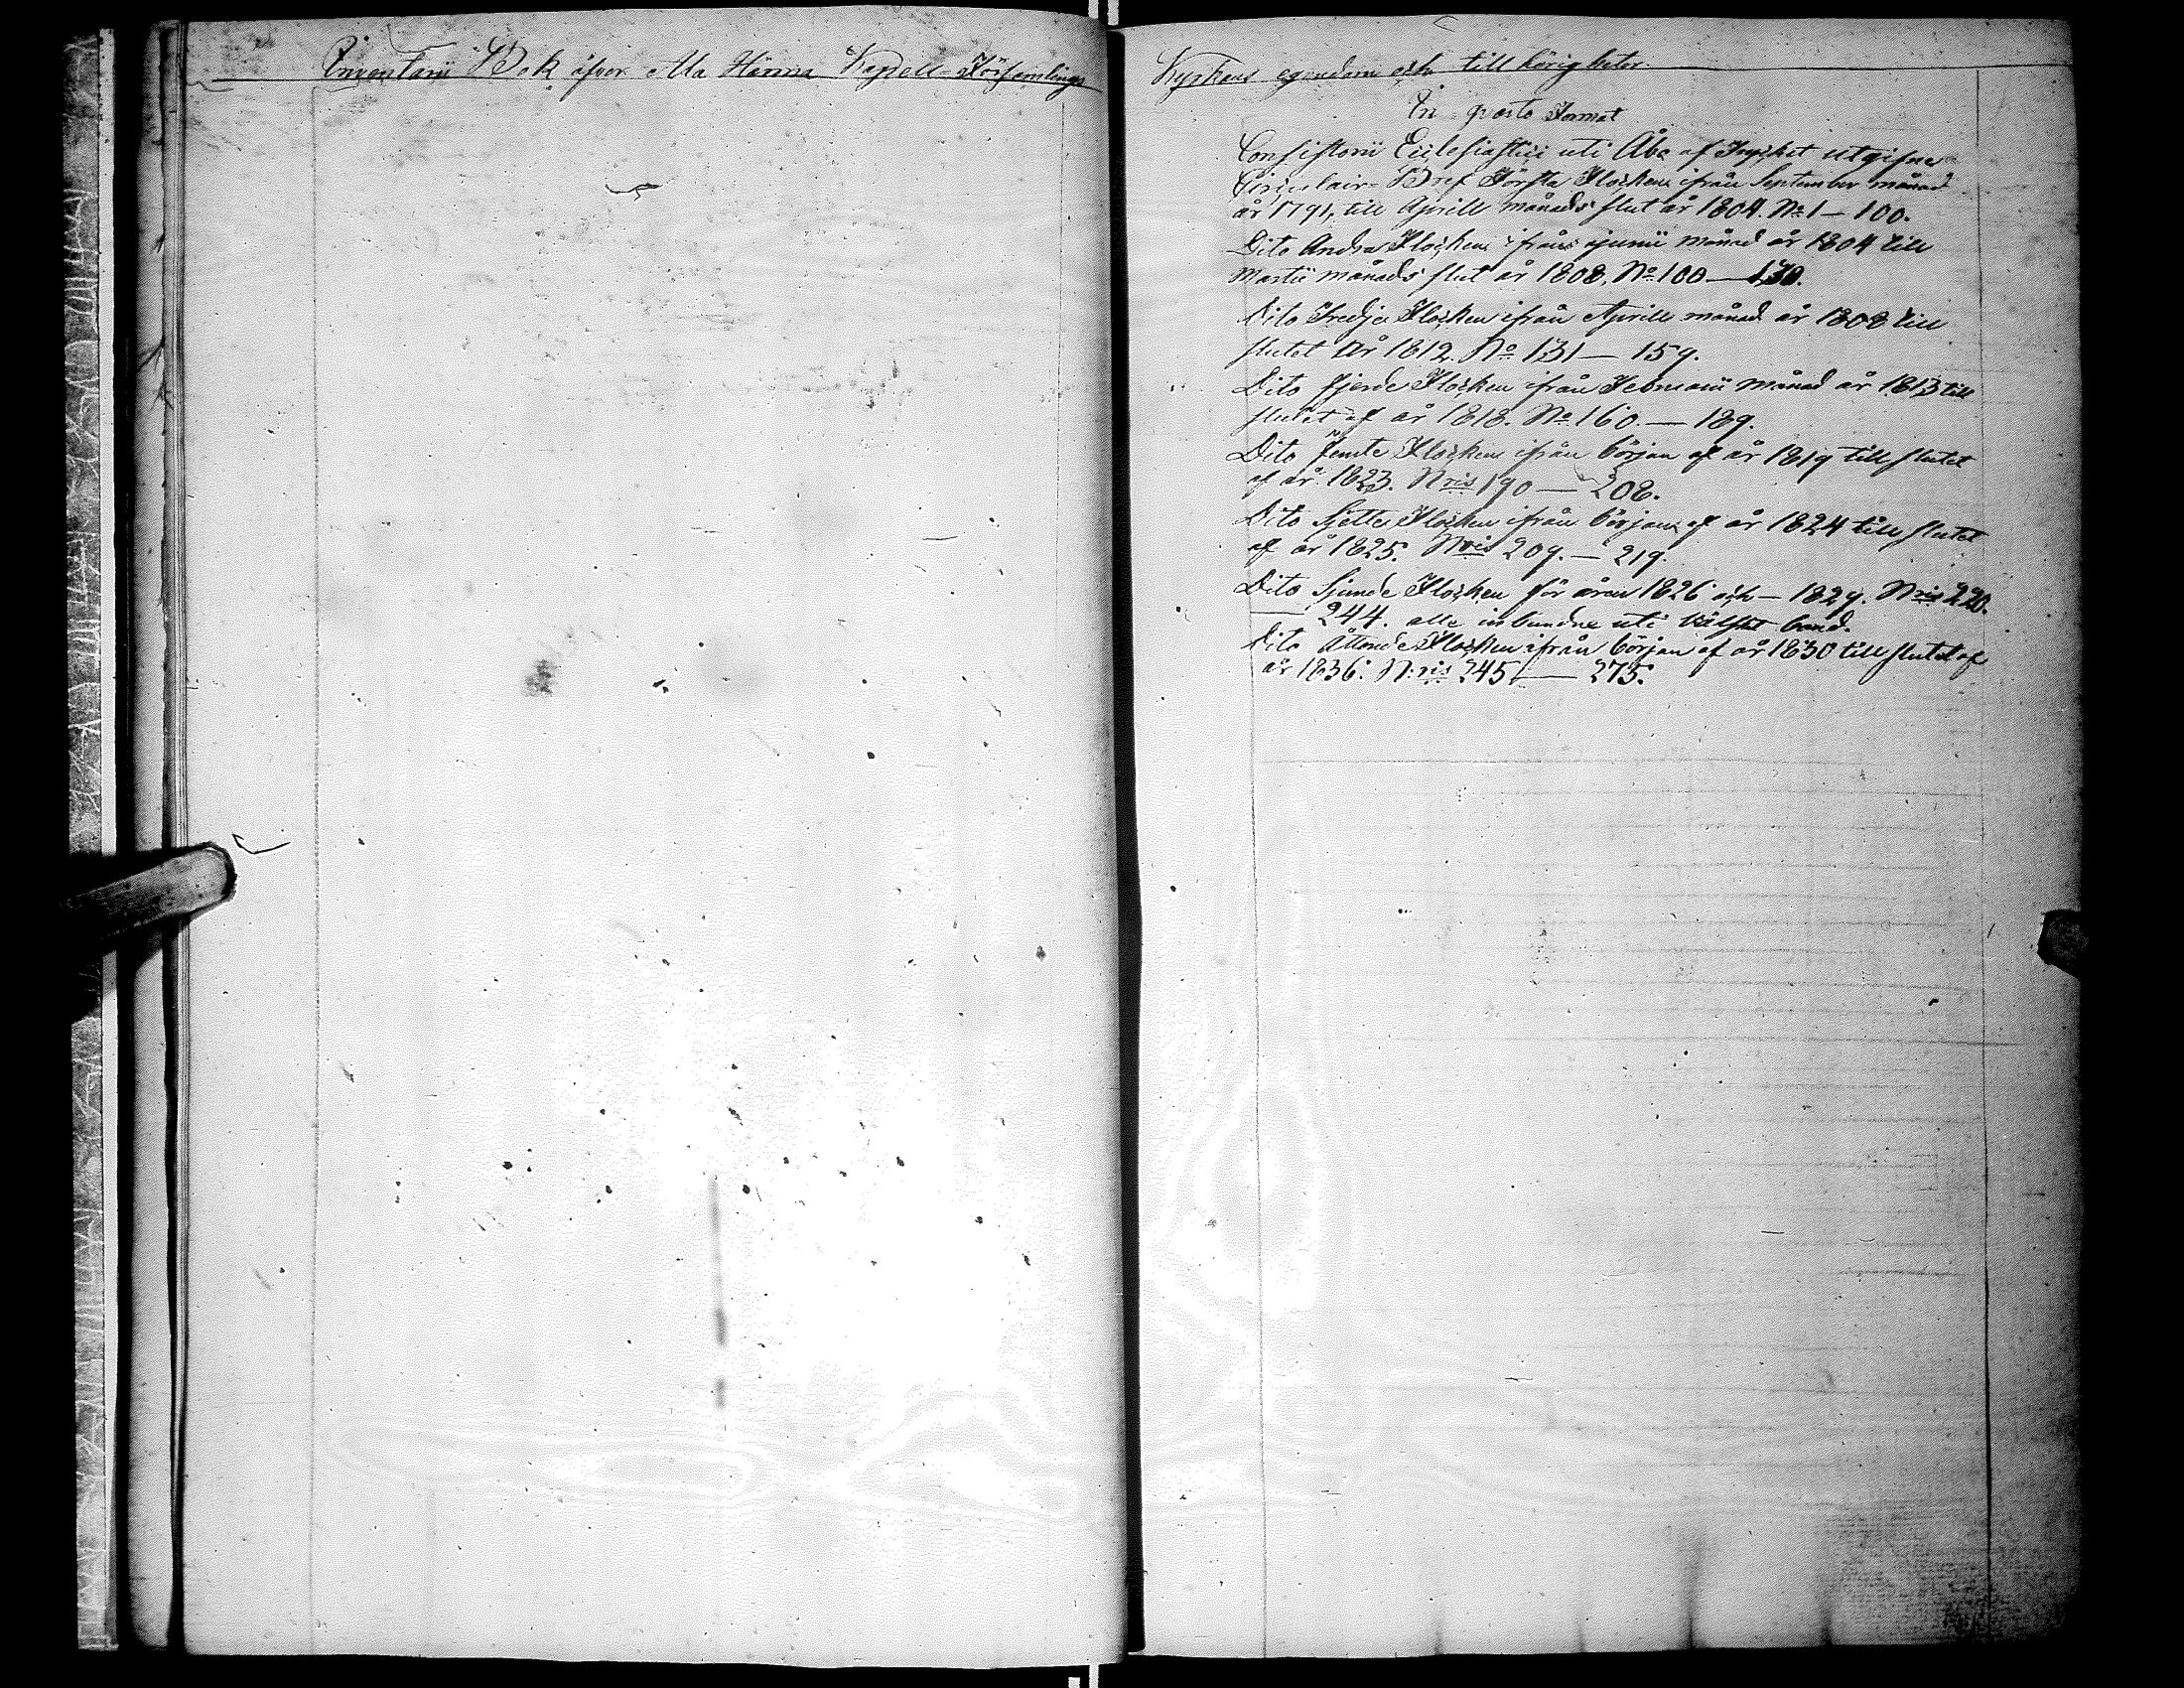 Inventarii Bok öfver Ala Härmä Kapell-Församlings
Kyrkans egendom och tillhörigheter.
In qvarto Format
Consistorii Ecclesiastici uti Åbo af Trycket utgifne
Circulair-Bref Första Flocken ifrån September månad
år 1791, till Aprill månads slut år 1804. No 1 — 100.
Dito Andra Flocken ifrån Junii månad år 1804 till
Martii månads slut år 1808, No 100 — 130.
Dito Tredje Flocken ifrån Aprill månad år 1808 till
slutet År 1812. No 131 — 159.
Dito fjerde Flocken ifrån Februarii månad år 1813 till
slutet af år 1818. No 160. — 189.
Dito femte Flocken ifrån början af år 1819 till slutet
af år 1823. Nris 190 — 208.
Dito Sjette Flocken ifrån början af år 1824 till slutet
af år 1825. Nris 209. — 219.
Dito Sjunde Flocken för åren 1826 och — 1829. Nris 220.
— 244. alla inbundne uti band.
Dito Åttonde Flocken ifrån början af år 1830 till slutet af
år 1836. N:ris 245 — 275.